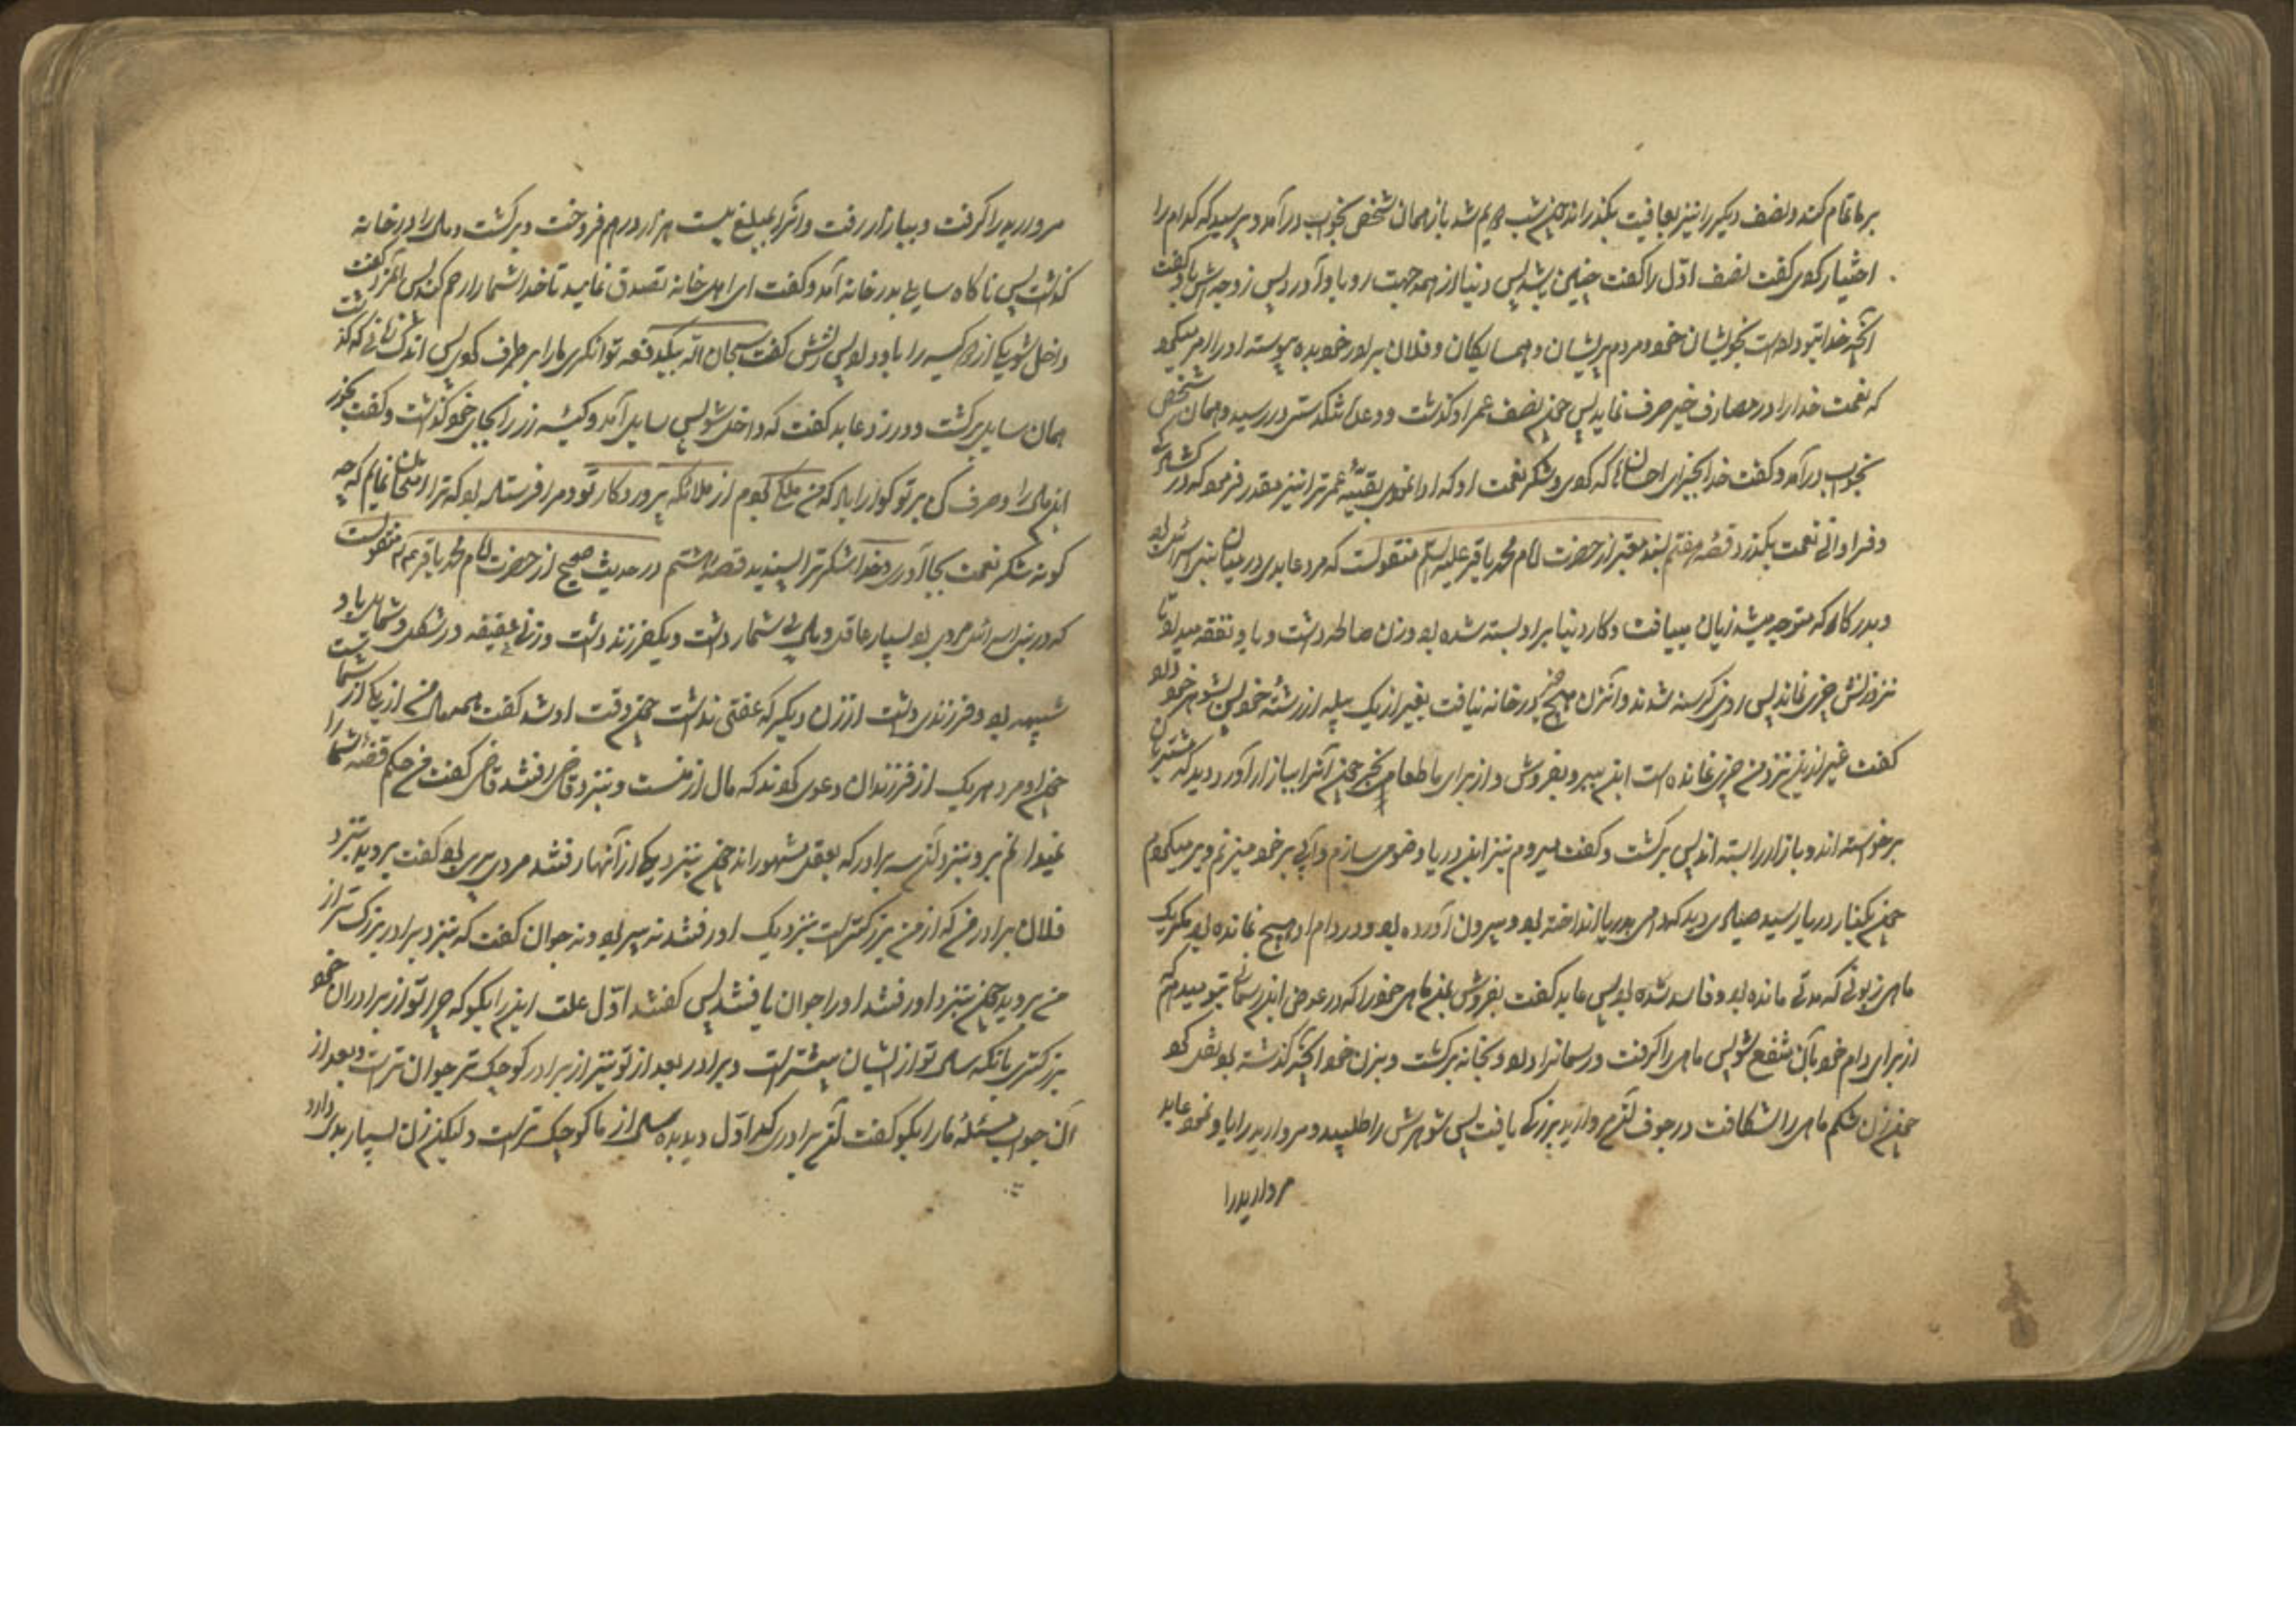 بر ما تمام کند و نصف دیکر را نیز بعافیت بکذراند چون شب سیم شد باز همان شخص بخواب در آمد و پرسید که کدام را
اختیار کردی کفت نصف اوّل را کفت چنین باشد پس دنیا از همه جهت رو باو آورد پس زوجه‌اش باو کفت
آنچه خدا بتو داده است بخویشان خود و مردم پریشان و همسایکان و فلان برادر خود بده و پیوسته او را امر میکرد
که نعمت خدا را در مصارف خیر صرف نماید پس چون نصف عمر او کذشت و وعدهٔ تنکدستی در رسید همان شخص
بخواب در آمد و کفت خدا بجزای احسانها که کردی و شکر نعمت او که ادا نمودی بقیّهٔ عمر ترا نیز مقدر فرمود که در کشادکی
و فراوانی نعمت بکذرد قصّه هفتم بسند معتبر از حضرت امام محمد باقر علیه السلم منقولست که مرد عابدی در میان بنی اسرائیل بود
و بهر کار که متوجه میشد زیان مییافت و کار دنیا بر او بسته شده بود و زن صالحه داشت و باو نفقه میداد تا
نزد زنش چیزی نماند پس روزی کرسنه شدند و آنزن هیچ چیز در خانه نیافت بغیر از یک پیله از رشتهٔ خود پس بشوهر خود داد
کفت غیر از این نزد من چیزی نمانده است این را ببر و بفروش و از برای ما طعامی بخر چون آنرا ببازار آورد دید که مشتریان
برخواسته‌اند و بازار را بسته‌اند پس برکشت و کفت میروم نزد این دریا و وضوی میسازم و آبی بر خود میزنم و بر میکردم
چون بکنار دریا رسید صیادی دید که دامی بدریا انداخته بود و بیرون آورده بود و در دام او هیچ نمانده بود مکر یک
ماهی زبونی که مدتی مانده بود و فاسد شده بود پس عابد کفت بفروش بمن ماهی خود را که در عوض این ریسمان بتو میدهم که
از برای دام خود بآن منتفع شو پس ماهی را کرفت و ریسمانرا داد و بخانه برکشت و بزن خود آنچه کذشته بود نقل کرد
چون زن شکم ماهی را شکافت در جوف آن مروارید بزرکی یافت پس شوهرش را طلبید و مروارید را باو نمود عابد
مروارید را
مروارید را کرفت و ببازار رفت و آنرا بمبلغ بیست هزار درهم فروخت و برکشت و مال را در خانه
کذاشت پس ناکاه سایلی بدر خانه آمد و کفت ای اهل خانه تصدق نمایید تا خدا شما را رحم کند پس آنمرد کفت
داخل شو یکی از دو کیسه را باو داد پس زنش کفت سبحان اللّه بیکدفعه توانکری ما را برطرف کردی پس اندک زمانی که کذشت
همان سایل برکشت و در زد عابد کفت که داخل شو پس سایل آمد و کیسهٔ زر را بجای خود کذاشت و کفت بخور
این مال را و صرف کن بر تو کوارا باد که من ملکی بودم از ملائکه پروردکار تو و مرا فرستاده بود که ترا امتحان نمایم که چه
کونه شکر نعمت بجا آوری و خدا شکر ترا پسندید قصّه هشتم در حدیث صحیح از حضرت امام محمد باقر عم منقولست
که در بنی اسرائیل مردی بود بسیار عاقل و مال بی شمار داشت و یکفرزند داشت و زنی عفیفه در شکل و شمایل باو
شبیه بود و دو فرزندی داشت از زن دیکر که عفتی نداشت چون وقت او شد کفت همه مال من از یکی از شماست
چون او مرد هریک از فرزندان دعوی کردند که مال از منست و بنزد قاضی رفتند قاضی کفت من حکم قضیّه شما را
نمیدانم بروید نزد آن سه برادر که بعقل مشهورند چون بنزد یکی از آنها رفتند مردی پیری بود کفت بروید بنزد
فلان برادر من که از من بزرکتر است بنزدیک او رفتند نه پیر بود و نه جوان کفت که بنزد برادر بزرک تر از
من بروید چون بنزد او رفتند او را جوان یافتند پس کفتند اوّل علت این را بکو که چرا تو از برادران خود
بزرکتری بآنکه سال تو از ایشان بیشتر است و برادر بعد از تو نیز از برادر کوچک تر جوان تر است و بعد از
آن جواب مسئلهٔ ما را بکو کفت آن برادری که اوّل دیدید سال از ما کوچک تر است و لیکن زن بسیار بدی دارد